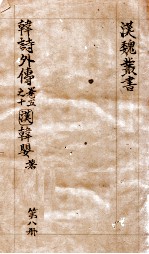 漢魏叢書
韓詩外傳 卷五之十 漢 韓嬰 著
第八冊